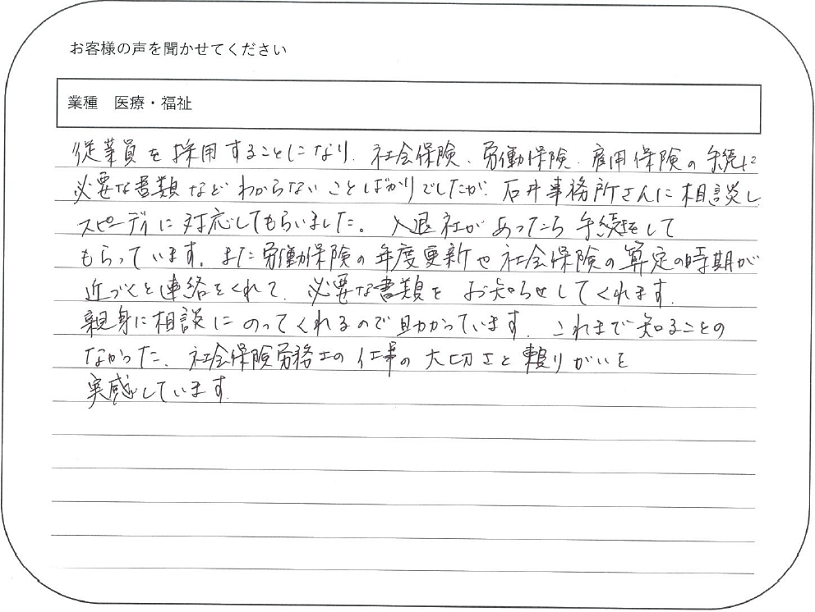 お客様の声を聞かせてください
業種　医療・福祉
従業員を採用することになり、社会保険、労働保険、雇用保険の手続に
必要な書類などわからないことばかりでしたが、石井事務所さんに相談し
スピーディに対応してもらいました。入退社があったら手続をして
もらっています。また労働保険の年度更新や社会保険の算定の時期が
近づくと連絡をくれて、必要な書類を お知らせしてくれます。
親身に相談にのってくれるので助かっています。これまで知ることの
なかった、社会保険労務士の仕事の大切さと頼りがいを
実感しています。